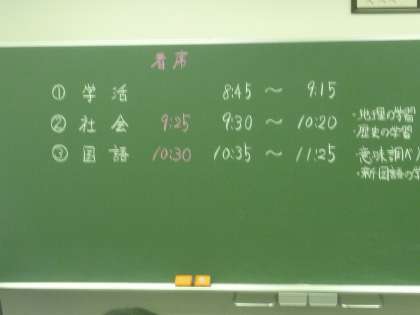 着席
① 学活 8:45 ～ 9:15
② 社会 9:25 9:30 ～ 10:20 ・地理の学習
・歴史の学習
③ 国語 10:30 10:35 ～ 11:25 意味調べ
・新国語の学